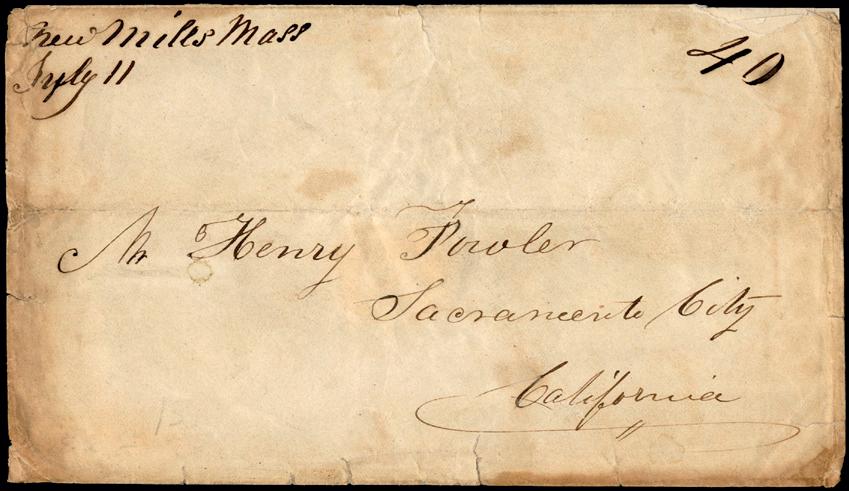 New Mills Mass
July 11
40
Mr Henry Fowler
Sacramento City
California